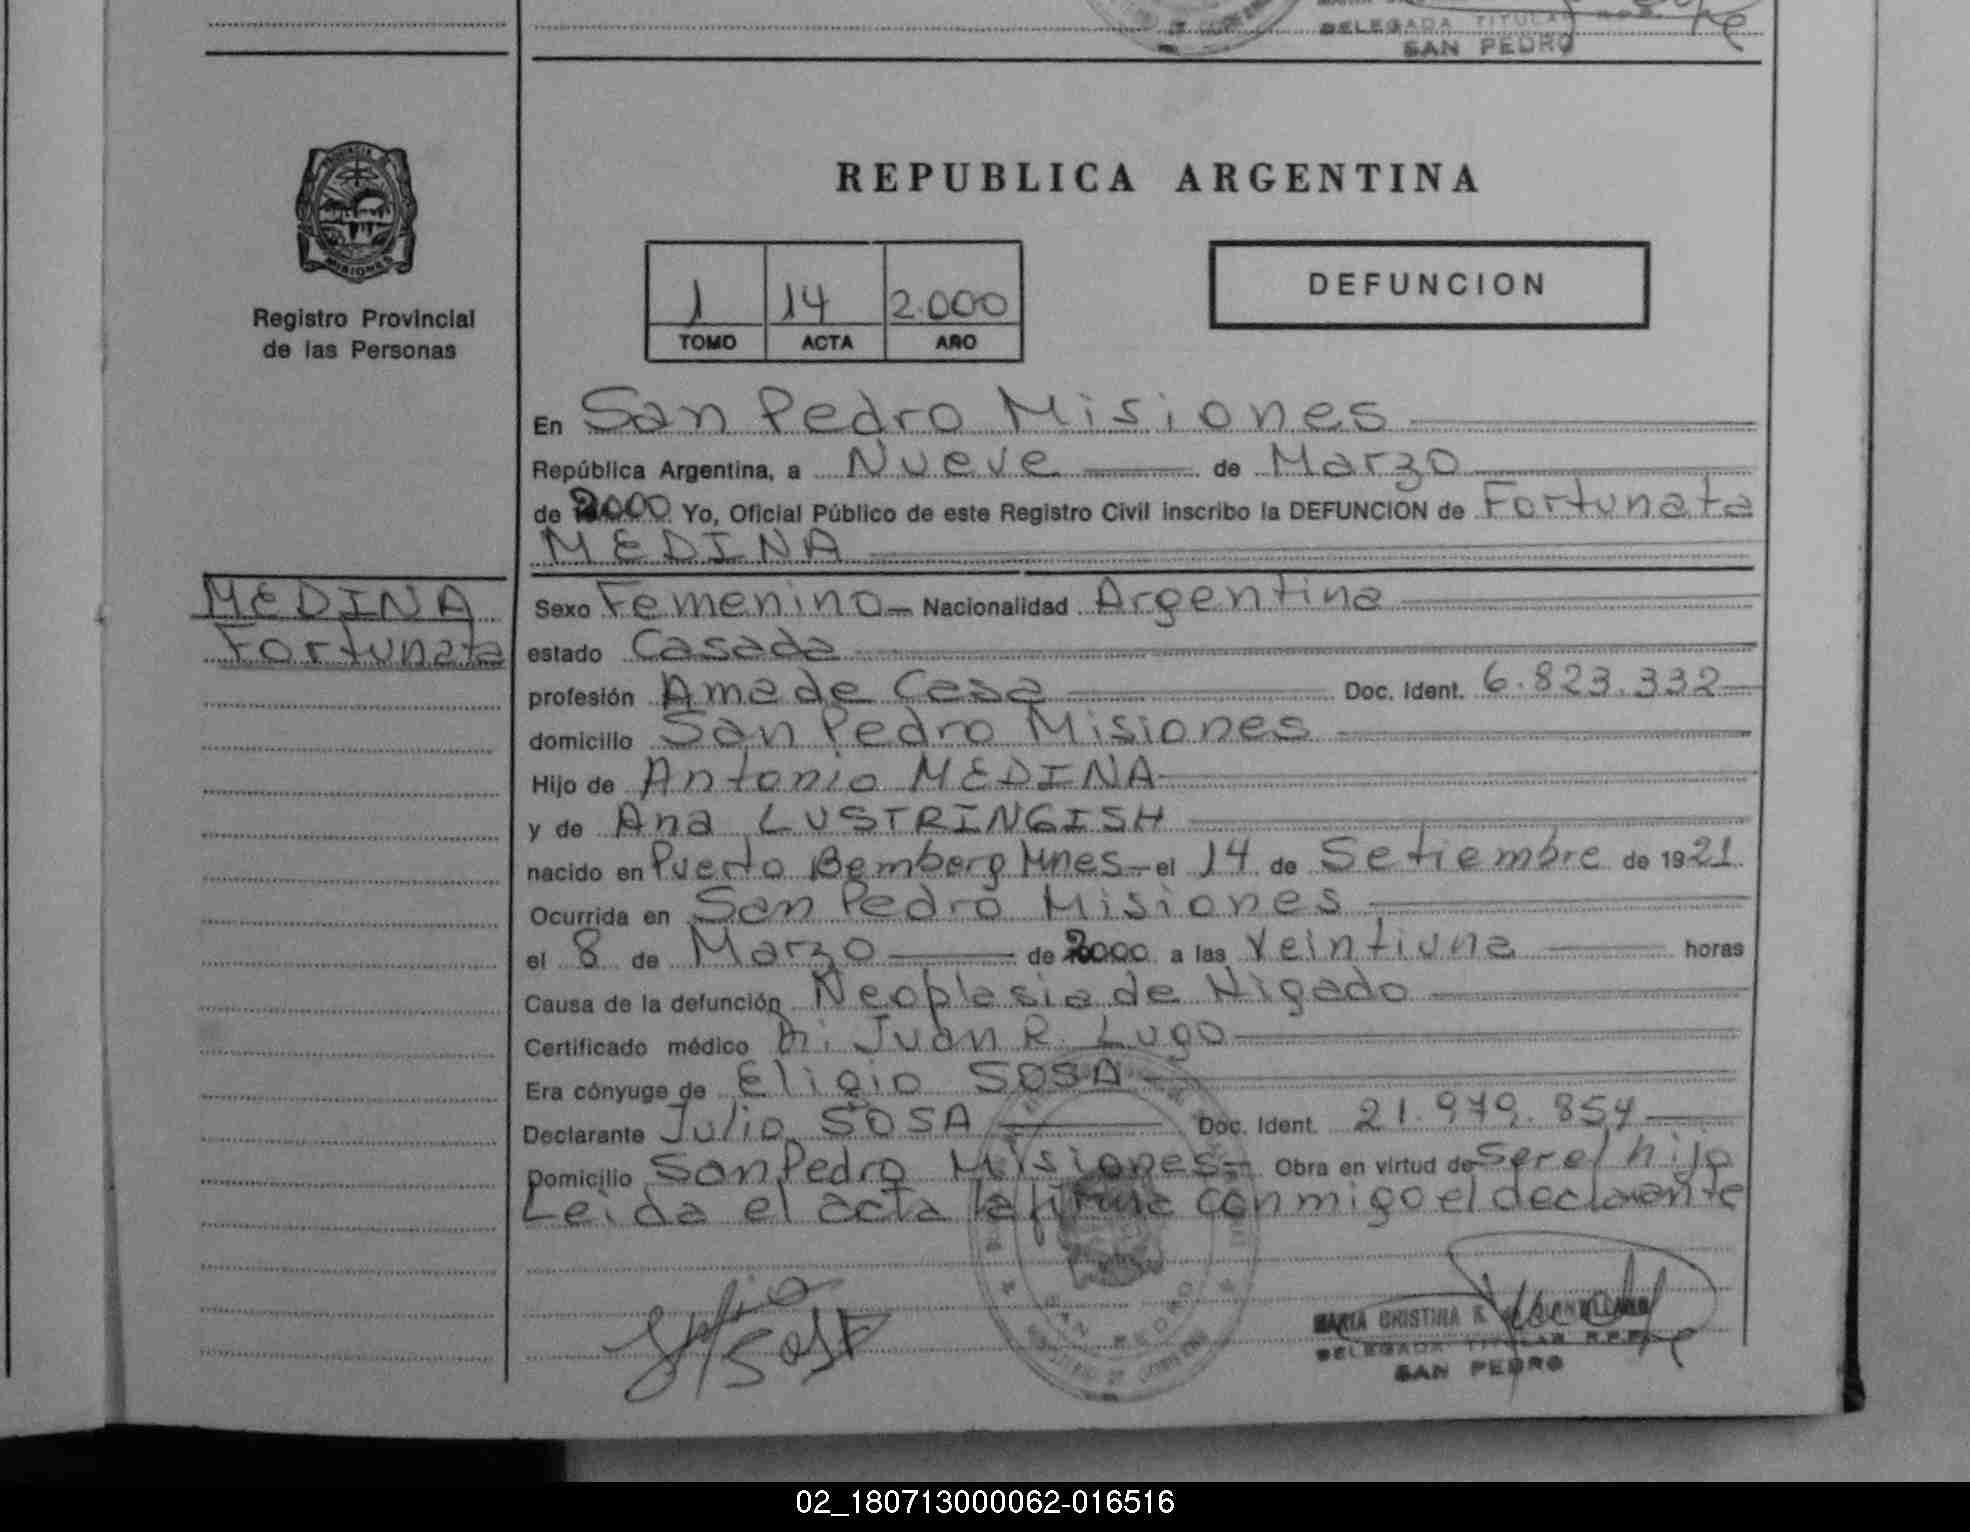 DELEGADA TITULAR
SAN PEDRO
PROVINCIA DE
MISIONES
Registro Provincial
de las Personas
REPUBLICA ARGENTINA
1 14 2.000
TOMO ACTA AÑO
DEFUNCION
En San Pedro Misiones
República Argentina, a Nueve de Marzo
de 2000 Yo, Oficial Público de este Registro Civil inscribo la DEFUNCION de Fortunata
MEDINA
MEDINA
Fortunata
Sexo Femenino Nacionalidad Argentina
estado Casada
profesión Ama de Casa Doc. Ident. 6.823.332
domicilio San Pedro Misiones
Hijo de Antonio MEDINA
y de Ana LUSTRINGISH
nacido en Puerto Bemberg Mnes el 14 de Setiembre de 1921
Ocurrida en San Pedro Misiones
el 8 de Marzo de 2000 a las Veintiuna horas
Causa de la defunción Neoplasia de Higado
Certificado médico Dr: Juan R. Lugo
Era cónyuge de Eligio SOSA
Declarante Julio SOSA Doc. Ident. 21.979.854
Domicilio San Pedro Misiones Obra en virtud de ser el hijo
Leida el acta la firma conmigo el declarante
Julio
Sosa
SAN PEDRO
MARIA CRISTINA R.
DELEGADA TITULAR R.P.P.
SAN PEDRO
02_180713000062-016516